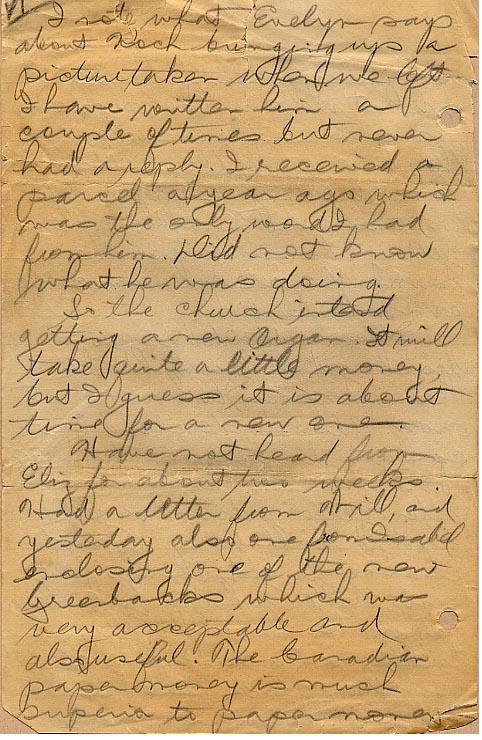 I note what Evelyn says
about Koch bringing up a
picture taken when we left
I have written him a
couple of times but never
had a reply. I received a
parcel a year ago which
was the only word I had
from him. Did not know
what he was doing.
So the church intend
getting a new Organ. It will
take quite a little money,
but I guess it is about
time for a new one.
Have not heard from
Eliz for about two weeks.
Had a letter from Will, and
yesterday also one from Isabel
enclosing one of the new
Greenbacks which was
very acceptable and
also useful. The Canadian
paper money is much
superior to paper money